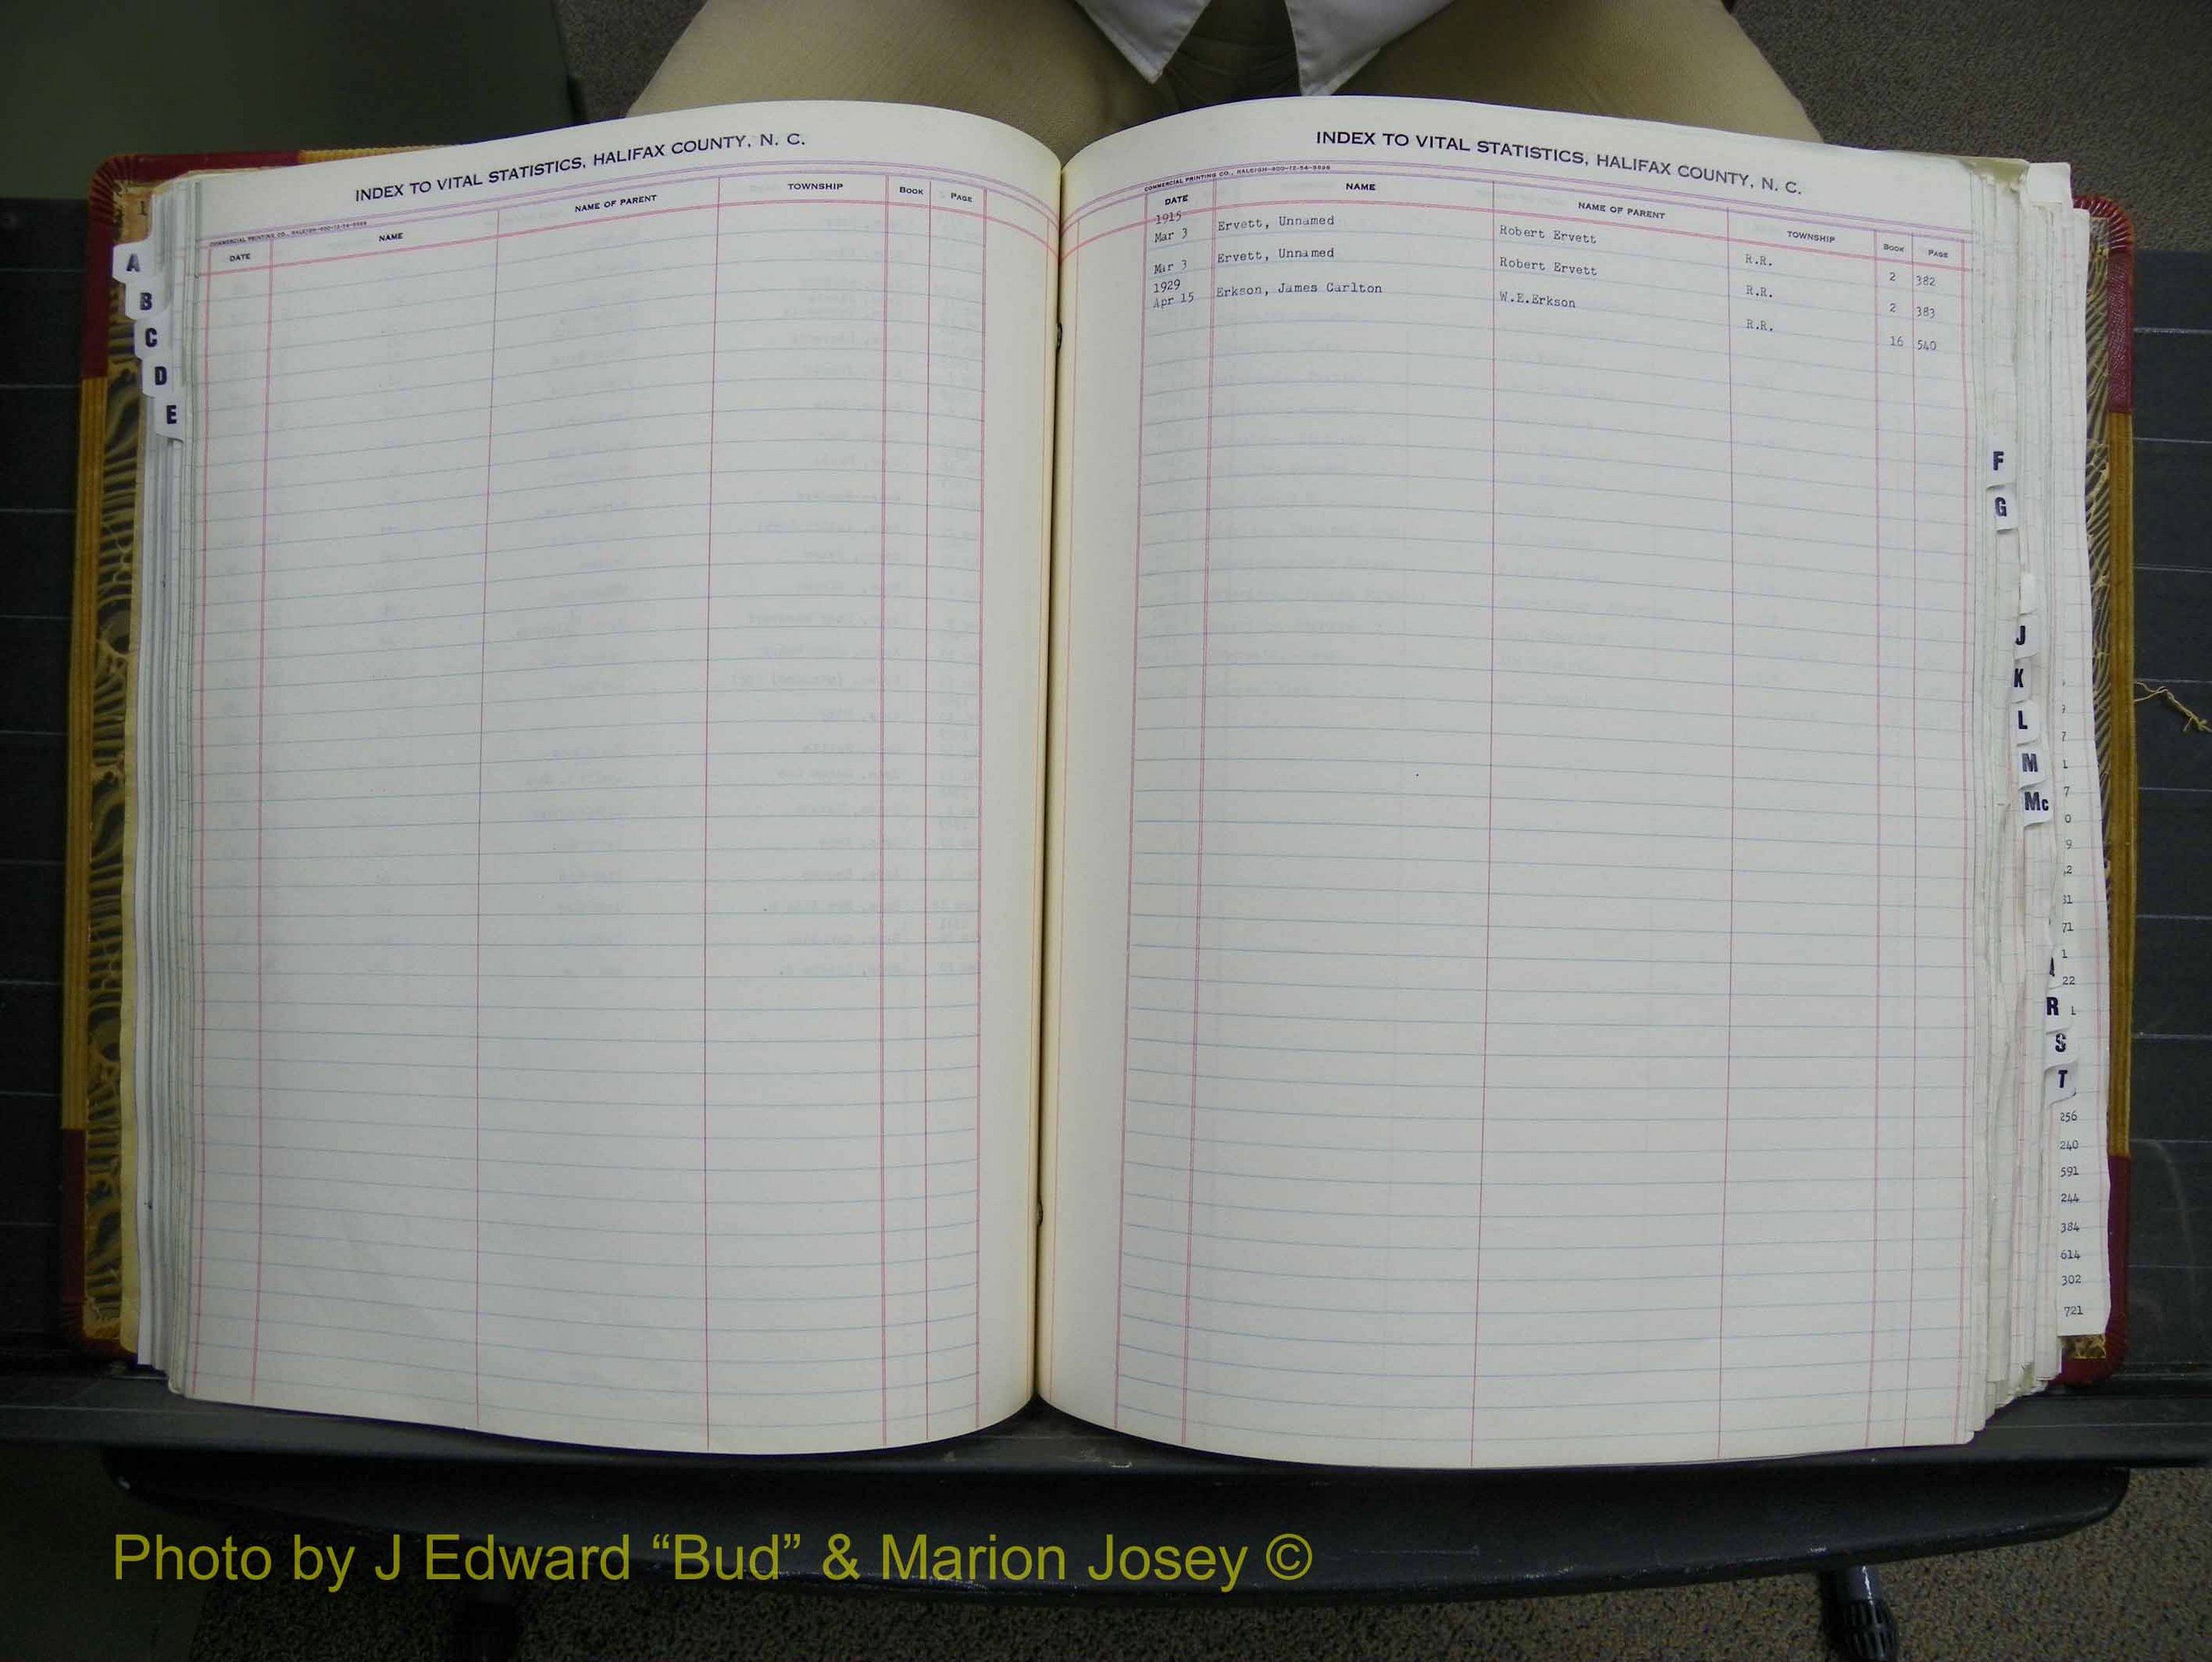 INDEX TO VITAL STATISTICS, HALIFAX COUNTY, N. C.
COMMERCIAL PRINTING CO., RALEIGH
DATE NAME NAME OF PARENT TOWNSHIP BOOK PAGE
A
B
C
D
E
INDEX TO VITAL STATISTICS, HALIFAX COUNTY, N. C.
COMMERCIAL PRINTING CO., RALEIGH
DATE NAME NAME OF PARENT TOWNSHIP BOOK PAGE
1915
Mar 3 Ervett, Unnamed Robert Ervett R.R. 2 382
Mar 3 Ervett, Unnamed Robert Ervett R.R. 2 383
1929
Apr 15 Erkson, James Carlton W.E.Erkson R.R. 16 540
F
G
J
K
L
M
Mc
R
S
T
256
240
591
244
384
614
302
721
Photo by J Edward “Bud” & Marion Josey ©